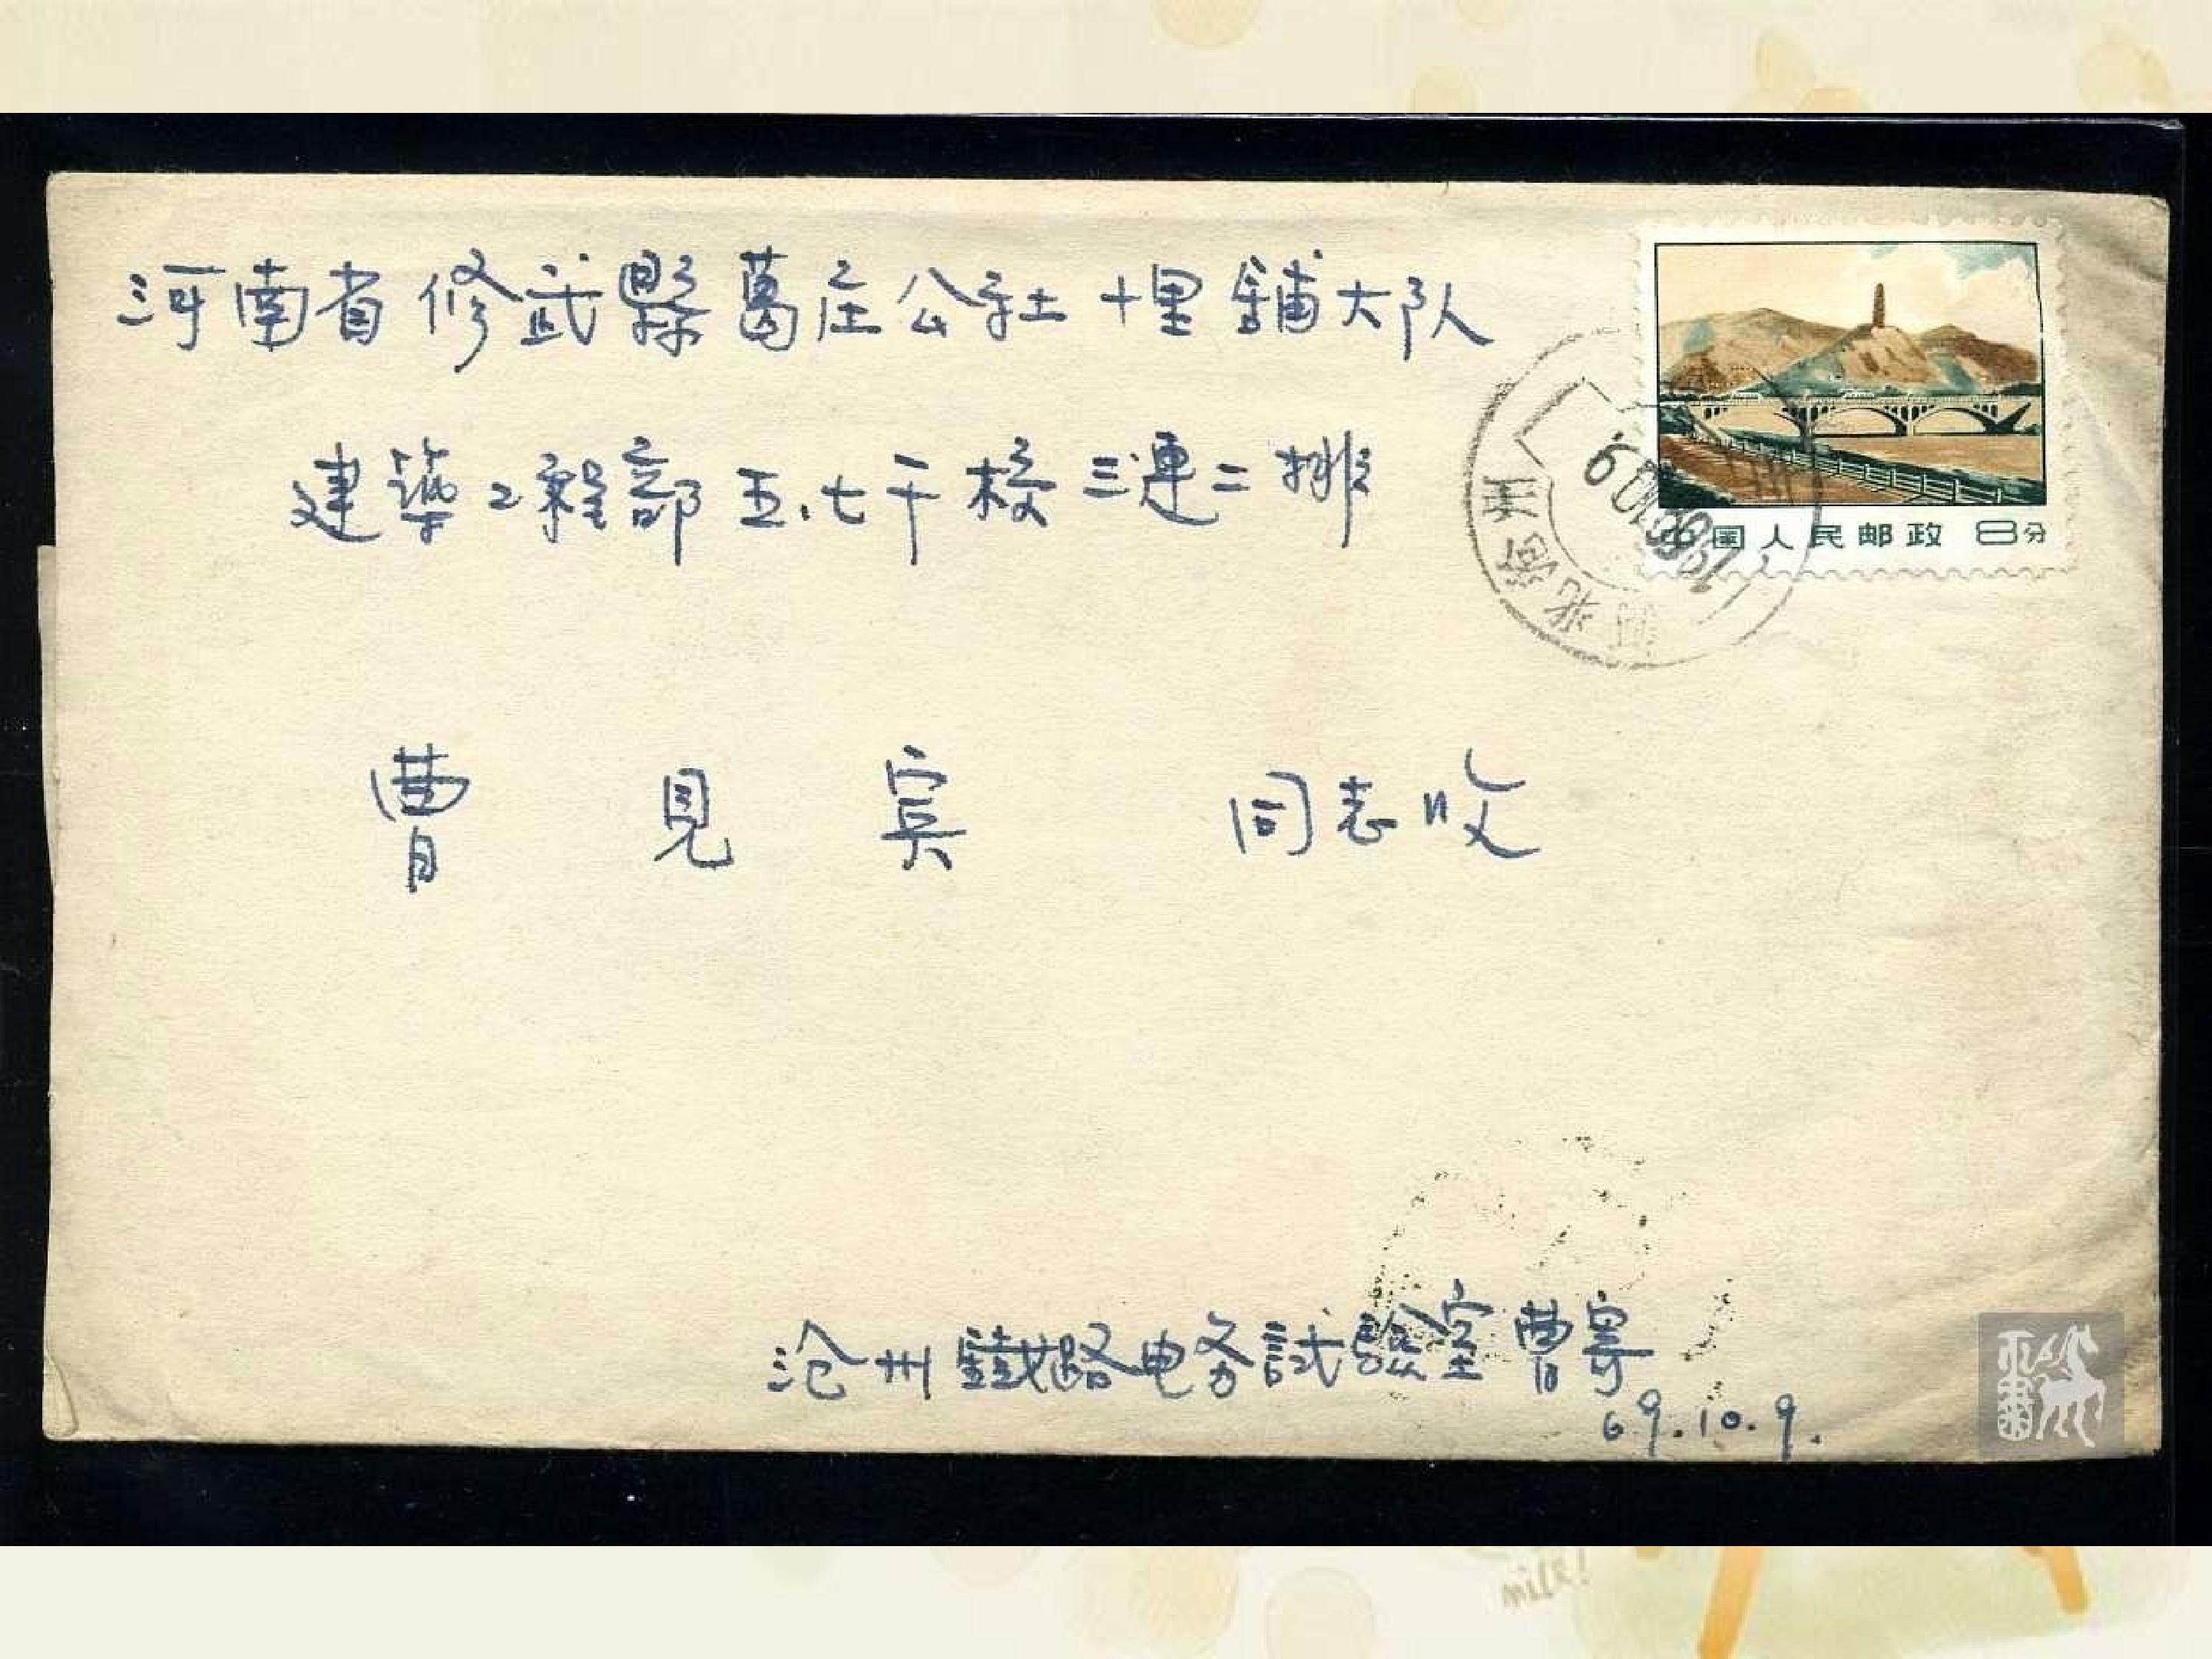 河南省修武縣葛庄公社十里鋪大队
建築工程部五.七干校三連二排
曹見宾 同志收
中国人民邮政 8分
河北沧州
1969.10.9
沧州鐵路电务試驗室曹寄
69.10.9.
milk!